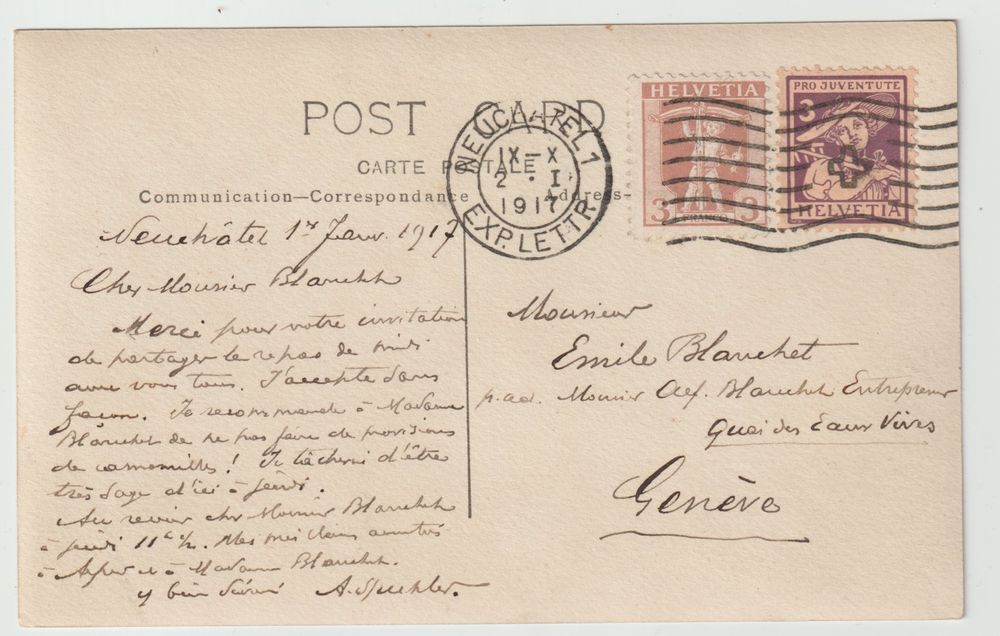 POST CARD
CARTE POSTALE
Communication—Correspondance
Address—
NEUCHATEL 1
IX–X
2 • I
1917
EXP. LETTR.
HELVETIA
3 3
FRANCO
PRO JUVENTUTE
3
HELVETIA
Neuchâtel 1er Janv. 1917
Cher Monsieur Blanchet
Merci pour votre invitation
de partager le repas de midi
avec vous tous. J'accepte sans
façon. Je recommande à Madame
Blanchet de ne pas faire de provisions
de camomilles! Je tâcherai d'être
très sage d'ici à jeudi.
Au revoir cher Monsieur Blanchet
à jeudi 11 h. Mes meilleures amitiés
à et à Madame Blanchet.
bien
Monsieur
Emile Blanchet
p. ad. Monsieur Alf. Blanchet Entrepreneur
Quai des Eaux Vives
Genève